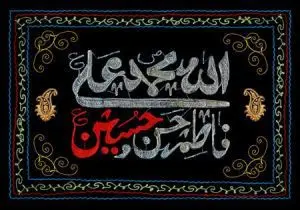 الله محمد ص علی ع
فاطمه حسن و حسین ع